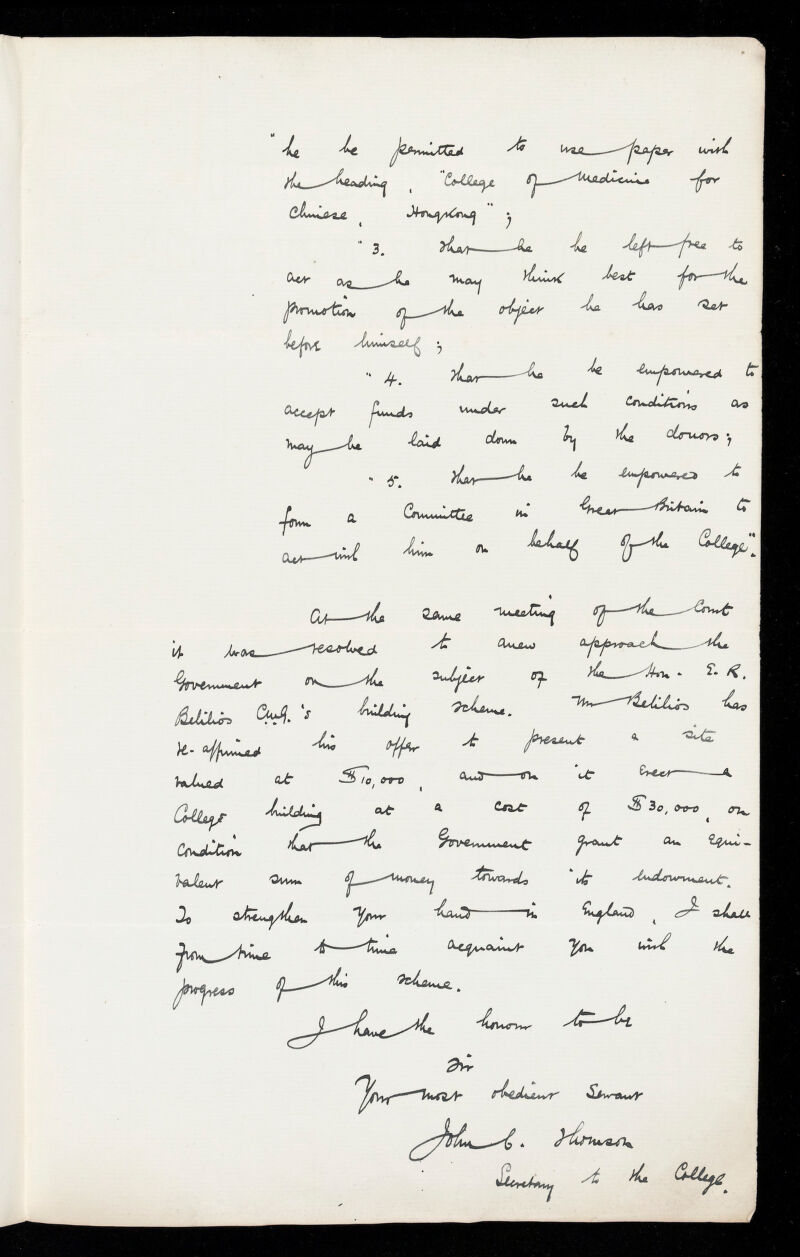 "he be permitted to use paper with
the heading, "College of Medicine for
Chinese, Hongkong";
"3. That he be left free to
act as he may think best for the
promotion of the object he has set
before himself;
"4. That he be empowered to
accept funds under such conditions as
may be laid down by the donors;
"5. That he be empowered to
form a Committee in Great Britain to
act with him on behalf of the College".
At the same meeting of the Court
it was resolved to anew approach the
Government on the subject of the Hon. E. R.
Belilios C.M.G.'s building scheme. Mr Belilios has
re-affirmed his offer to present a site
valued at $10,000, and on it erect a
College building at a cost of $30,000, on
condition that the Government grant an equi-
valent sum of money towards its endowment.
To strengthen your hand in England, I shall
from time to time acquaint you with the
progress of this scheme.
I have the honour to be
Sir
Your most obedient Servant
John C. Thomson
Secretary to the College.